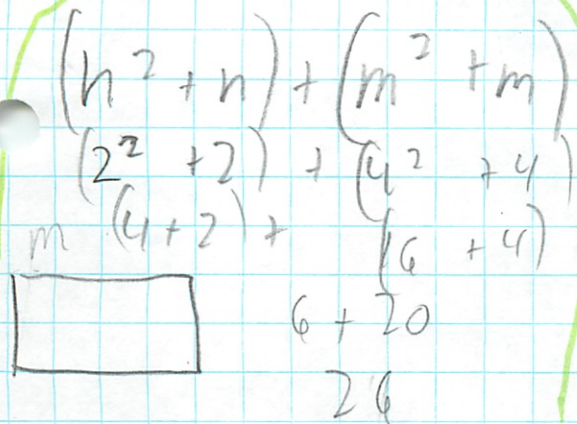 (n² + n) + (m² + m)
(2² + 2) + (4² + 4)
m (4 + 2) + (16 + 4)
6 + 20
26